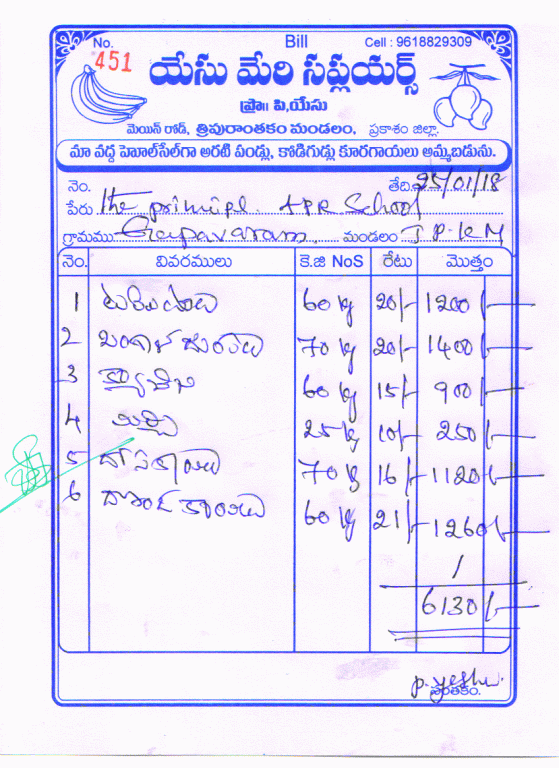 No. Bill Cell : 9618829309
451
యేసు మేరి సప్లయర్స్
ప్రొ॥ పి,యేసు
మెయిన్ రోడ్, త్రిపురాంతకం మండలం, ప్రకాశం జిల్లా.
మా వద్ద హెూల్‌సేల్‌గా అరటి పండ్లు, కోడిగుడ్లు కూరగాయలు అమ్మబడును.
నెం. తేది 25/01/18
పేరు The principl. APR School
గ్రామము మండలం T P. K M
నెం. వివరములు కె.జి NoS రేటు మొత్తం
1 60 kg 20/- 1200/-
2 70 kg 20/- 1400/-
3 క్యాబేజి 60 kg 15/- 900/-
4 మిర్చి 25 kg 10/- 250/-
5 దోసకాయలు 70 kg 16/- 1120/-
6 దొండకాయలు 60 kg 21/- 1260/-
6130/-
P. yeshu.
సంతకం.